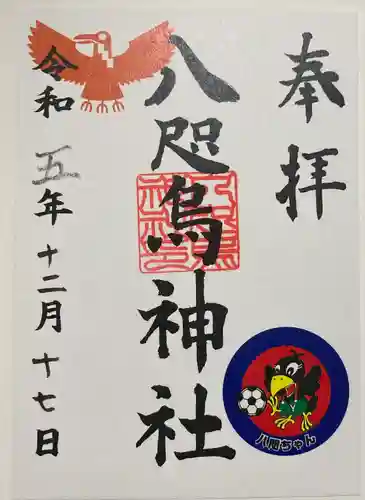 奉拝
八咫烏神社
令和五年十二月十七日
八咫ちゃん